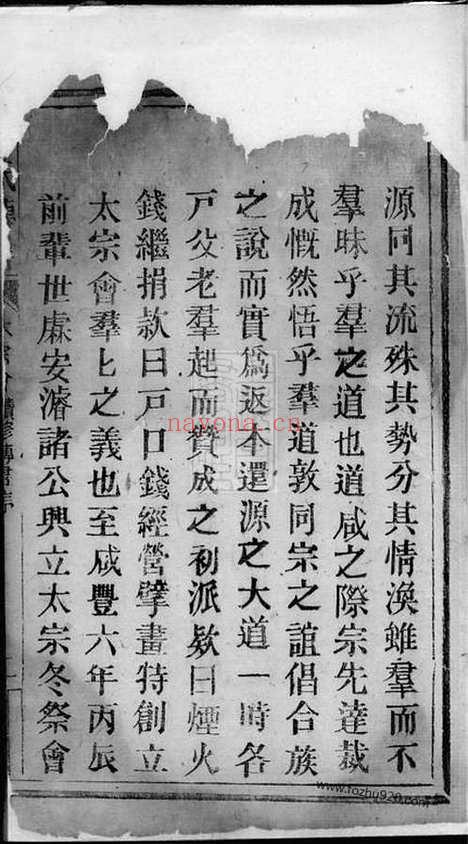 源同其流殊其勢分其情渙雖羣而不
羣昧乎羣之道也道咸之際宗先達裁
成慨然悟乎羣道敦同宗之誼倡合族
之說而實爲返本還源之大道一時各
戸父老羣起而贊成之初派欵曰煙火
錢繼捐款曰戸口錢經營擘畫特創立
太宗會羣匕之義也至咸豐六年丙辰
前輩世處安濬諸公興立太宗冬祭會
nayona.cn
www.fozhu920.com